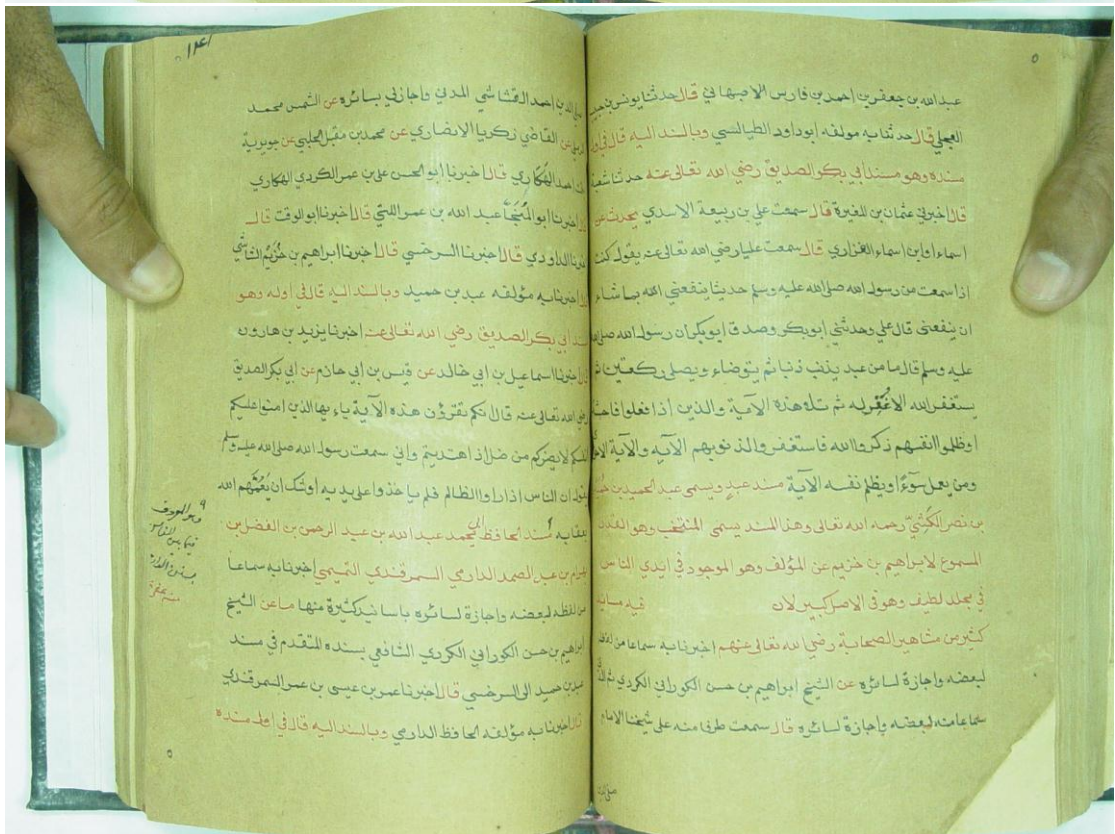 عبدالله بن جعفر بن احمد بن فارس الاصبهاني قال حدثنا يونس بن حبيب
العجلي قال حدثنا به مولفه ابوداود الطيالسي وبالسند اليه قال في
مسنده وهو مسند أبي بكر الصديق رضي الله تعالى عنه حدثنا شعبة
قال اخبرني عثمان بن المغيرة قال سمعت علي بن ربيعة الاسدي يحدث عن
اسماء اوابن اسماء الفزاري قال سمعت عليا رضي الله تعالى عنه يقول كنت
اذا سمعت من رسول الله صلى الله عليه وسلم حديثا ينفعني الله بما شاء
ان ينفعني قال علي وحدثني ابوبكر وصدق ابوبكر ان رسول الله صلى الله
عليه وسلم قال ما من عبد يذنب ذنبا ثم يتوضاء ويصلي ركعتين ثم
يستغفر الله الاغفر له ثم تلا هذه الآية والذين اذا فعلوا فاحشة
اوظلموا انفسهم ذكروا الله فاستغفروا لذنوبهم الآيه والآية
ومن يعمل سوءً اويظلم نفسه الآية مسند عبد ويسمى عبد الحميد بن
بن نصر الكشيّ رحمه الله تعالى وهذا المسند يسمى المنتخب وهو القدر
المسموع لابراهيم بن خزيم عن المؤلف وهو الموجود في ايدي الناس
في مجلد لطيف وهو في الاصل كبير لان فيه مسانيد
كثير من مشاهير الصحابة رضي الله تعالى عنهم اخبرنا به سماعا من لفظه
لبعضه واجازة لسائره عن الشيخ ابراهيم بن حسن الكوراني الكردي ثم
سماعا منه لبعضه واجازة لسائره قال سمعت طرفا منه على شيخنا الامام
صفي الدين
١٢٤١
الدين احمد القشاشي المدني واجازني بسائره عن الشمس محمد
عن القاضي زكريا الانصاري عن محمد بن مقبل الحلبي عن جويرية
احمد الهكاري قال اخبرنا ابو الحسن علي بن عمر الكردي الهكاري
اخبرنا ابو المنجا عبد الله بن عمر اللتي قال اخبرنا ابوالوقت قال
الداودي قال اخبرنا السرخسي قال اخبرنا ابراهيم بن خُزَيْم الشاشي
اخبرنا به مؤلفه عبد بن حميد وبالسند اليه قال في أوله وهو
مسند ابي بكر الصديق رضي الله تعالى عنه اخبرنا يزيد بن هارون
اخبرنا اسماعيل بن ابي خالد عن قيس بن ابي حازم عن ابي بكر الصديق
رضي الله تعالى عنه قال انكم تقرؤن هذه الآية ياء يها الذين امنوا عليكم
انفسكم لايضركم من ضل اذا اهتديتم واني سمعت رسول الله صلى الله عليه وسلم
يقول ان الناس اذا راوا الظالم فلم ياخذوا على يديه اوشك ان يعمهم الله
بعقابه مسند الحافظ ابي محمد عبد الله بن عبد الرحمن بن الفضل بن
بهرام بن عبد الصمد الدارمي السمرقندي التميمي اخبرنا به سماعا
من لفظه لبعضه واجازة لسائره باسانيد كثيرة منها ما عن الشيخ
ابراهيم بن حسن الكوراني الكردي الشافعي بسنده المتقدم في مسند
عبد بن حميد الى السرخسي قال اخبرنا عمر بن عيسى بن عمر السمرقندي
قال اخبرنا به مؤلفه الحافظ الدارمي وبالسند اليه قال في اول مسنده
وهو المعروف